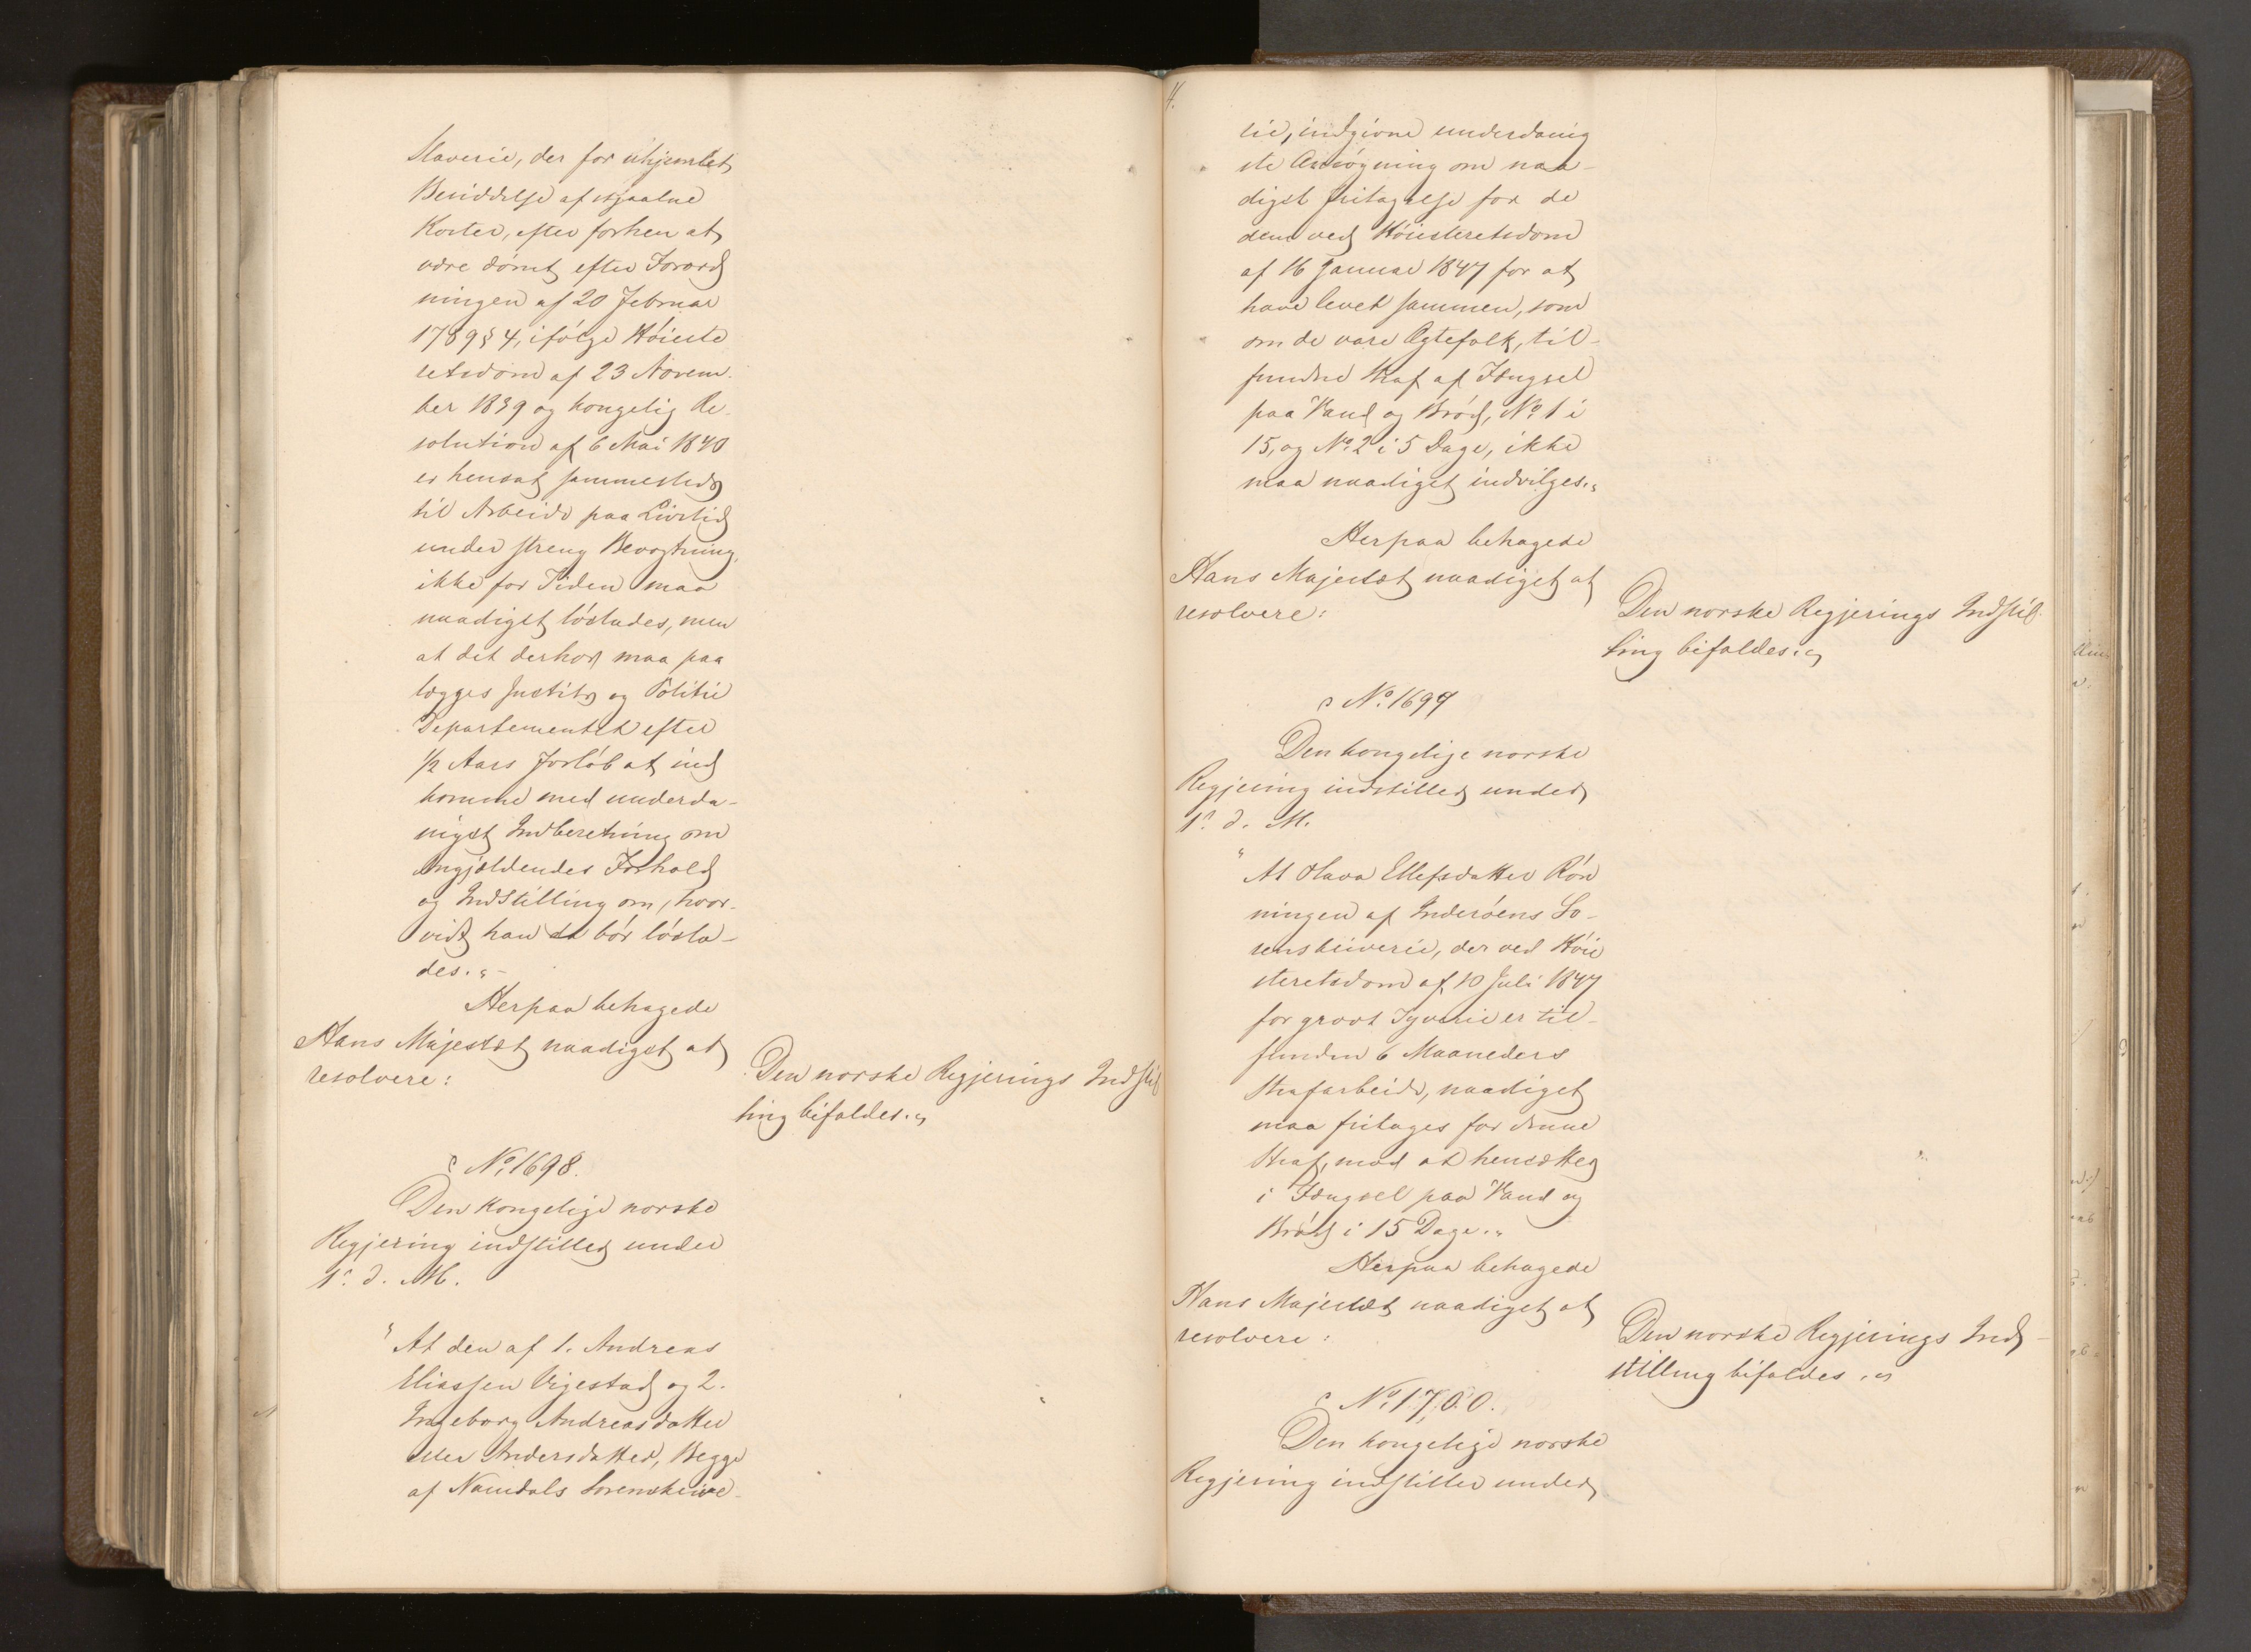 Slaverie, der for uhjemlet
Besiddelse af stjaalne
Koster, efter forhen at
være dømt efter Forord
ningen af 20 Februar
1789 § 4, ifølge Høieste
retsdom af 23 Novem-
ber 1839 og kongelig Re-
solution af 6 Mai 1840
er hensat sammesteds
til Arbeide paa Livstid
under streng Bevogtning,
ikke for Tiden maa
naadigst løslades, men
at det derhos maa paa
lægges Justits og Politie
Departementet efter
1/2 Aars Forløb at ind
komme med underda-
nigst Indberetning om
Angjældendes Forhold
og Indstilling om, hvor-
vidt han da bør løsla-
des."-
Herpaa behagede
Hans Majestæt naadigst at
resolvere:
Den norske Regjerings Indstil
ling bifaldes."
No. 1698.
Den kongelige norske
Regjering indstiller under
1ste d. M.
"At den af 1. Andreas
Eliassen Vigestad og 2.
Ingeborg Andreasdatter
eller Andersdatter, Begge
af Namdals Sorenskrive-
4.
rie, indgivne underdanig
ste Ansøgning om naa-
digst Fritagelse for de
dem ved Høiesteretsdom
af 16 Januar 1847 for at
have levet sammen, som
om de vare Ægtefolk, til-
fundne Straf af Fængsel
paa Vand og Brød, No. 1 i
15, og No. 2 i 5 Dage, ikke
maa naadigst indvilges."
Herpaa behagede
Hans Majestæt naadigst at
resolvere:
Den norske Regjerings Indstil-
ling bifaldes."
No. 1699
Den kongelige norske
Regjering indstiller under
1ste d. M.
"At Olava Ellefsdatter Røn
ningen af Inderøens So-
renskriverie, der ved Høie
steretsdom af 10 Juli 1847
for grovt Tyverie er til-
funden 6 Maaneders
Strafarbeide, naadigst
maa fritages for denne
Straf, mod at hensættes
i Fængsel paa Vand og
Brød i 15 Dage."
Herpaa behagede
Hans Majestæt naadigst at
resolvere:
Den norske Regjerings Ind-
stilling bifaldes."
No. 1700.
Den kongelige norske
Regjering indstiller under